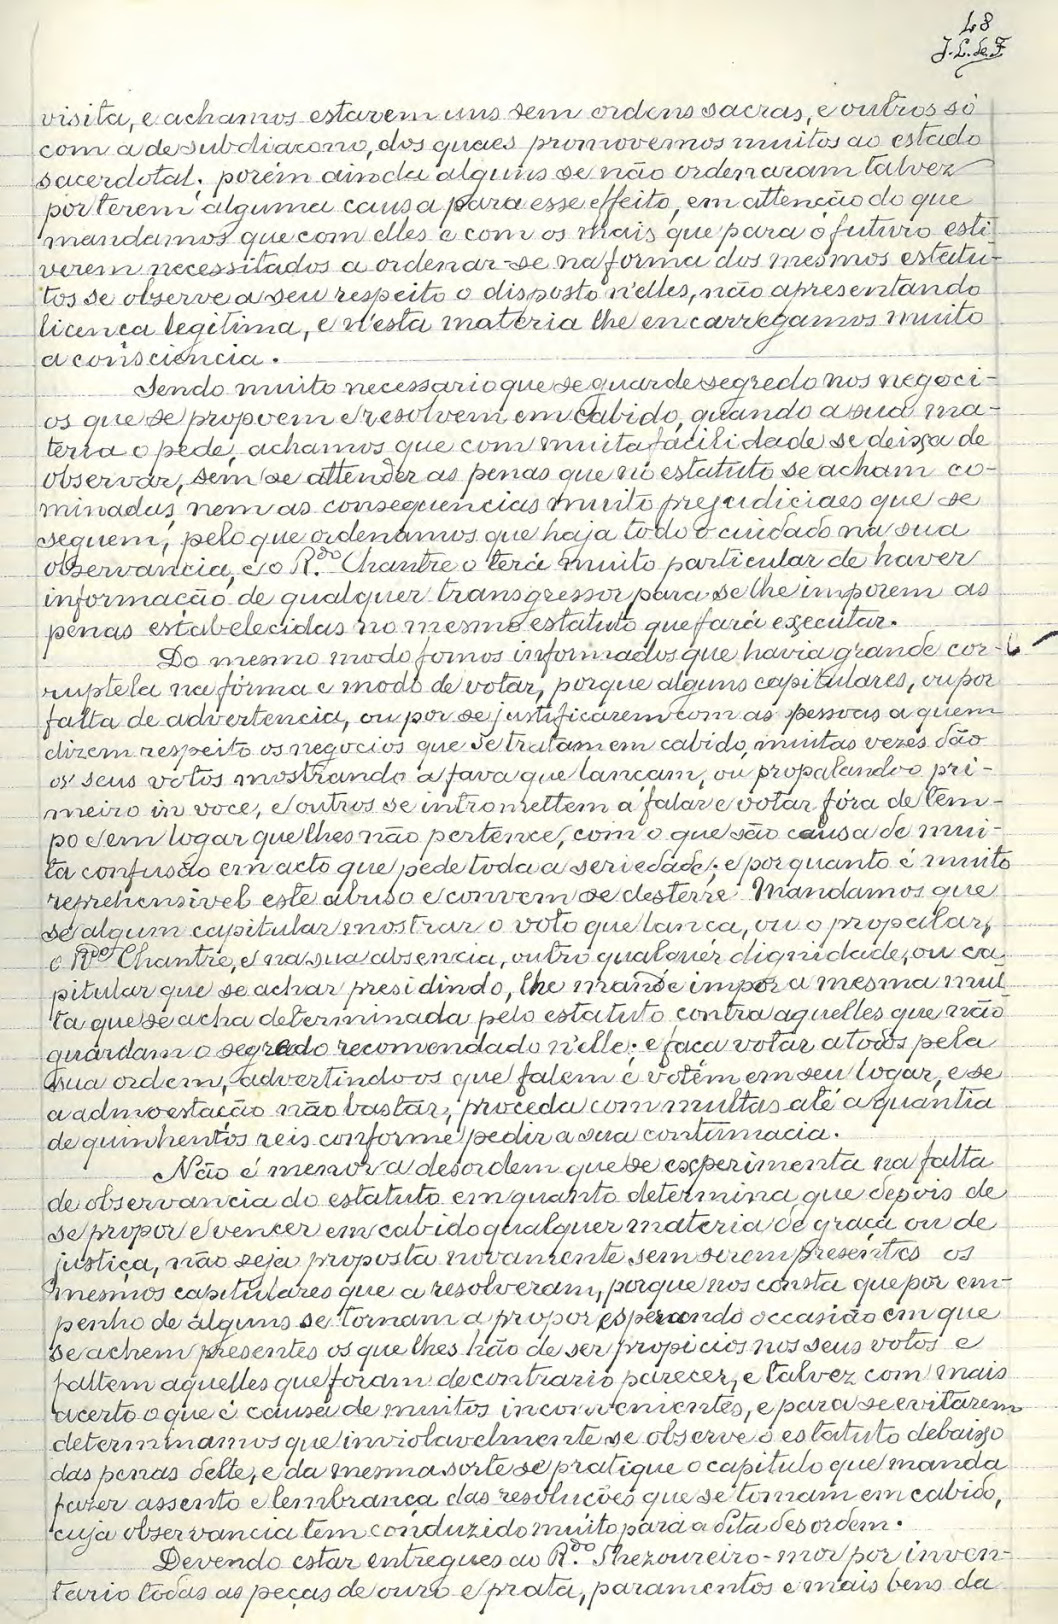 48
J. L. de F
visita, e achamos estarem uns sem ordens sacras, e outros só
com a de subdiacono, dos quaes promovemos muitos ao estado
sacerdotal; porém ainda alguns se não ordenaram talvez
por terem alguma causa para esse effeito, em attenção do que
mandamos que com elles e com os mais que para o futuro esti-
verem necessitados a ordenar-se na forma dos mesmos estatu-
tos se observe a seu respeito o disposto n'elles, não apresentando
licença legitima, e n'esta materia lhe encarregamos muito
a consciencia.
Sendo muito necessario que se guarde segredo nos negoci-
os que se propoem e resolvem em cabido, quando a sua ma-
teria o pede, achamos que com muita facilidade se deixa de
observar, sem se attender as penas que no estatuto se acham co-
minadas, nem as consequencias muito prejudiciaes que se
seguem; pelo que ordenamos que haja todo o cuidado na sua
observancia, e o R.do Chantre o terá muito particular de haver
informação de qualquer transgressor para se lhe imporem as
penas estabelecidas no mesmo estatuto que fará executar.
Do mesmo modo fomos informados que havia grande cor-
ruptela na fórma e modo de votar, porque alguns capitulares, ou por
falta de advertencia, ou por se justificarem com as pessoas a quem
dizem respeito os negocios que se tratam em cabido, muitas vezes dão
os seus votos mostrando a fava que lançam, ou propalando o pri-
meiro in voce, e outros se intromettem a falar e votar fóra de tem-
po e em logar que lhes não pertence, com o que são causa de mui-
ta confusão em acto que pede toda a seriedade; e por quanto é muito
reprehensivel este abuso e convem se desterre Mandamos que
se algum capitular mostrar o voto que lança, ou o propalar,
o R.do Chantre, e na sua absencia, outro qualquer dignidade, ou ca-
pitular que se achar presidindo, lhe mande impor a mesma mul-
ta que se acha determinada pelo estatuto contra aquelles que não
guardam o segredo recomendado n'elle; e faça votar a todos pela
sua ordem, advertindo-os que falem e votem em seu logar, e se
a admoestação não bastar, proceda com multas até a quantia
de quinhentos reis conforme pedir a sua contumacia.
Não é menor a desordem que se experimenta na falta
de observancia do estatuto emquanto determina que depois de
se propor e vencer em cabido qualquer materia de graça ou de
justiça, não seja proposta novamente sem serem presentes os
mesmos capitulares que a resolveram, porque nos consta que por em-
penho de alguns se tornam a propor esperando occasião em que
se achem presentes os que lhes hão de ser propicios nos seus votos e
faltem aquelles que foram de contrario parecer, e talvez com mais
acerto o que é causa de muitos inconvenientes, e para se evitarem
determinamos que inviolavelmente se observe o estatuto debaixo
das penas d'elle, e da mesma sorte se pratique o capitulo que manda
fazer assento e lembrança das resoluções que se tomam em cabido,
cuja observancia tem conduzido muito para a dita desordem.
Devendo estar entregues ao R.do Thezoureiro-mor por inven-
tario todas as peças de ouro e prata, paramentos e mais bens da